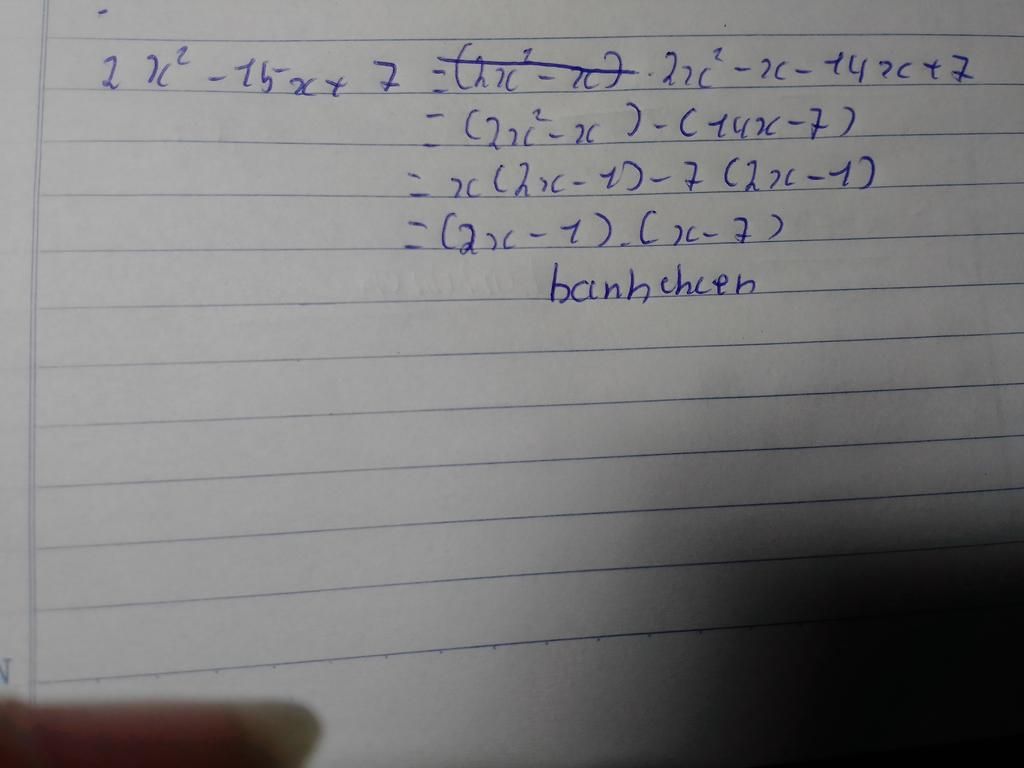 2x² - 15x + 7 = (2x² - x) . 2x² - x - 14x + 7
= (2x² - x) - (14x - 7)
= x(2x - 1) - 7(2x - 1)
= (2x - 1).(x - 7)
banhchen
N